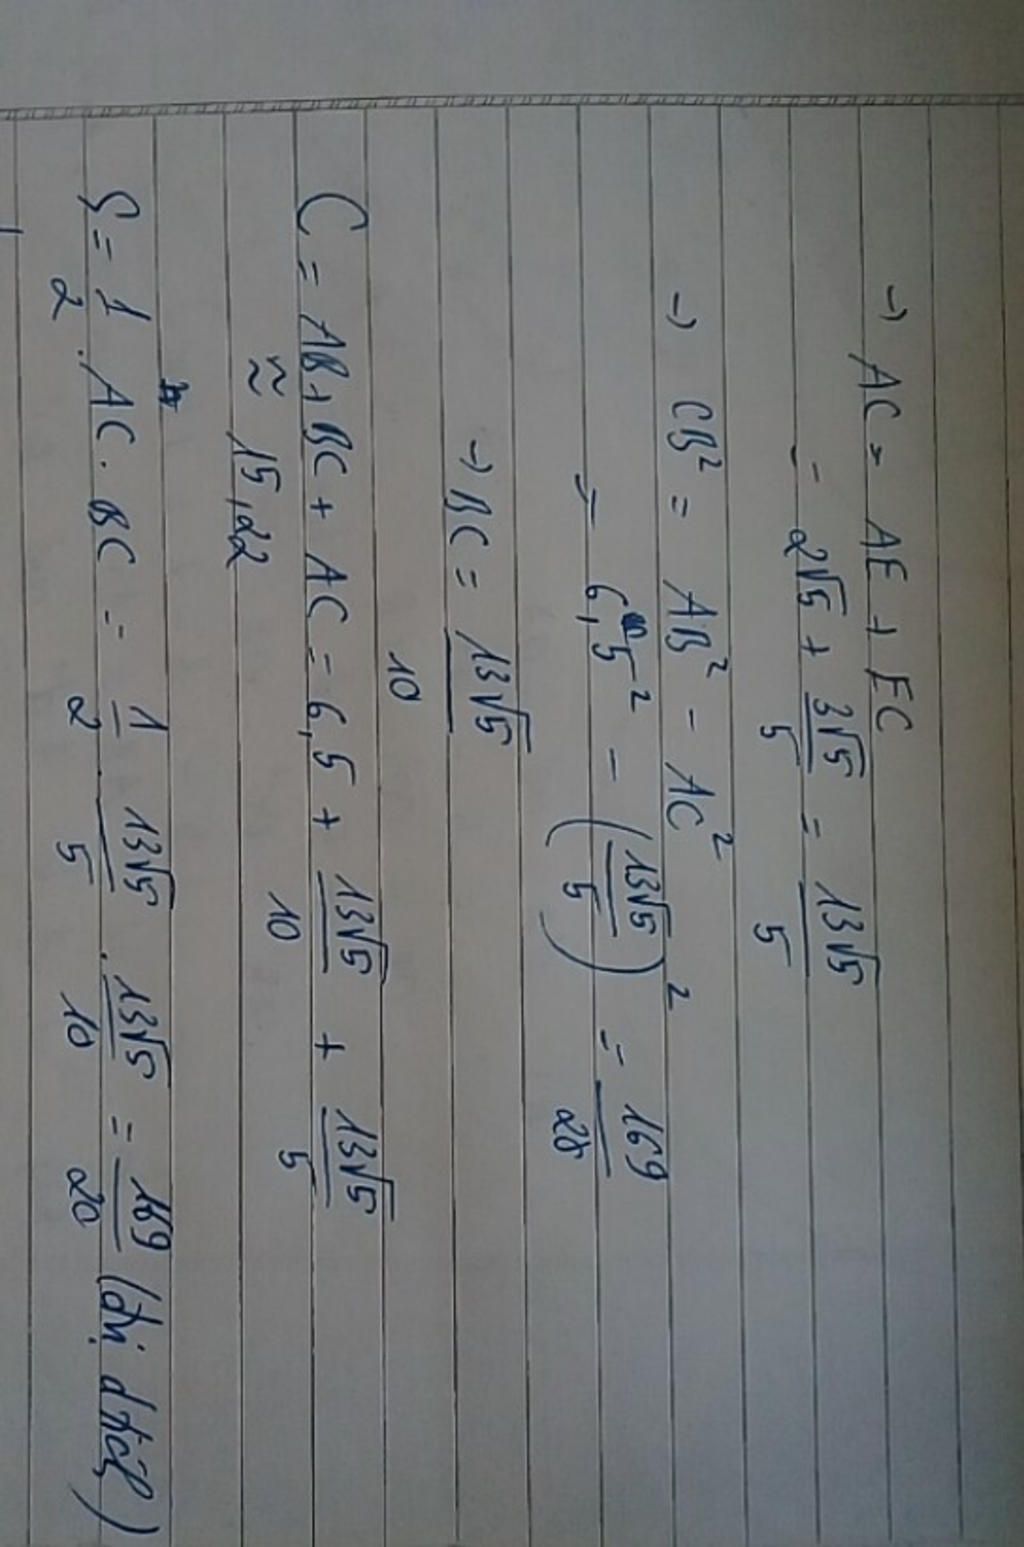 → AC = AE + EC
= 2√5 + 3√5/5 = 13√5/5
→ CB² = AB² - AC²
= 6,5² - (13√5/5)² = 169/20
→ BC = 13√5/10
C = AB + BC + AC = 6,5 + 13√5/10 + 13√5/5
≈ 15,22
S = 1/2 . AC . BC = 1/2 . 13√5/5 . 13√5/10 = 169/20 (đvị dtích)